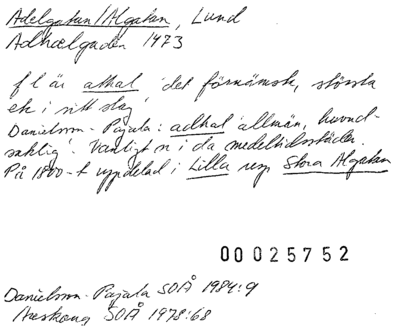 Adelgatan/Algatan, Lund
Adhælgaden 1473
fl är athal 'det förnämsta, största
etc i sitt slag'
Danielsson-Pajala: adhal 'allmän, huvud-
saklig'. Vanligt n i da medeltidsstäder.
På 1800-t uppdelad i Lilla resp Stora Algatan
00025752
Danielsson-Pajala SOÅ 1984:9
Areskoug SOÅ 1978:68